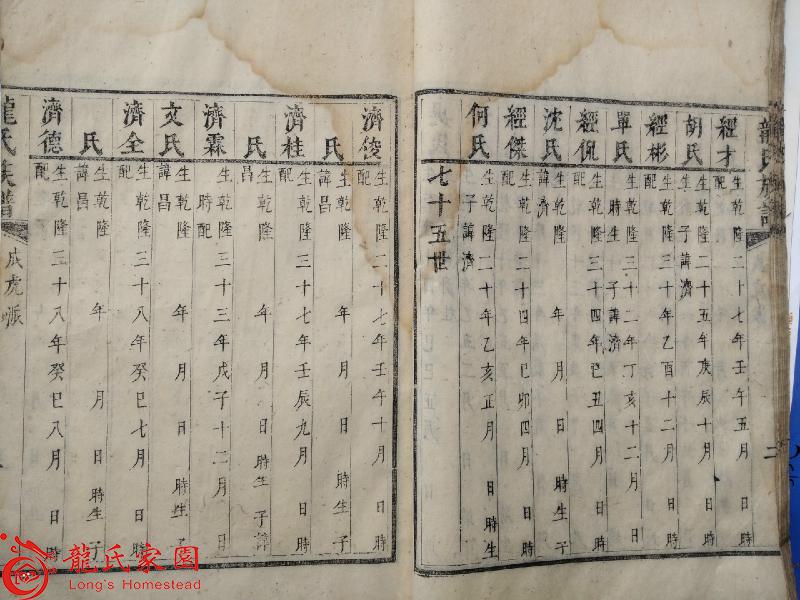 龍氏族譜
二
經才 生乾隆二十七年壬午五月 日時
配
胡氏 生乾隆二十五年庚辰十月 日時生
子諱濟
經彬 生乾隆三十年乙酉十二月 日時
配
單氏 生乾隆三十二年丁亥十二月 日
時生 子諱濟
經侃 生乾隆三十四年己丑四月 日時
配
沈氏 生乾隆 年 月 日時生子
諱濟
經傑 生乾隆二十四年己卯四月 日時
配
何氏 生乾隆二十年乙亥正月 日時生
子諱濟
七十五世
濟俊 生乾隆二十七年壬午十月 日時
配
氏 生乾隆 年 月 日時生子
諱昌
濟桂 生乾隆三十七年壬辰九月 日時
配
氏 生乾隆 年 月 日時生子諱
昌
濟霖 生乾隆三十三年戊子十二月 日
時配
文氏 生乾隆 年 月 日時生子
諱昌
濟全 生乾隆三十八年癸巳七月 日時
配
氏 生乾隆 年 月 日時生子
諱昌
濟德 生乾隆三十八年癸巳八月 日時
配
龍氏族譜
成虎派
龍氏家園
Long's Homestead